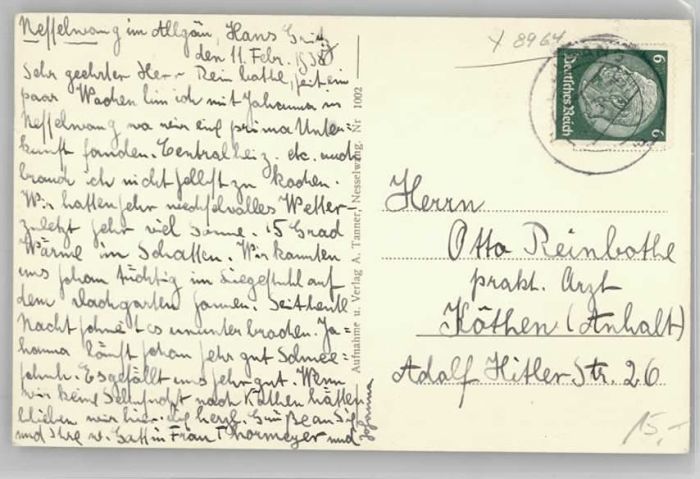 Nesselwang im Allgäu, Haus Greif
den 11. Febr. 1938
Sehr geehrter Herr Reinbothe, seit ein
paar Wochen bin ich mit Johanna in
Nesselwang wo wir eine prima Unter=
kunft fanden. Centralheiz. etc. auch
brauch ich nicht selbst zu kochen.
Wir hatten sehr wechselvolles Wetter –
zuletzt sehr viel Sonne. 15 Grad
Wärme im Schatten. Wir konnten
uns schon tüchtig im Liegestuhl auf
dem Dachgarten sonnen. Seit heute
Nacht schneit es ununterbrochen. Jo=
hanna läuft schon sehr gut Schnee=
schuh. Es gefällt uns sehr gut. Wenn
wir keine Sehnsucht nach Köthen hätten
blieben wir hier. Herzl. Grüße an Sie
und Ihre w. Gattin Frau Thormeyer und
Johanna
Aufnahme u. Verlag A. Tanner, Nesselwang. Nr 1002
Y 8964
6 Deutsches Reich 6
Herrn
Otto Reinbothe
prakt. Arzt
Köthen (Anhalt)
Adolf Hitler Str. 26
15,-